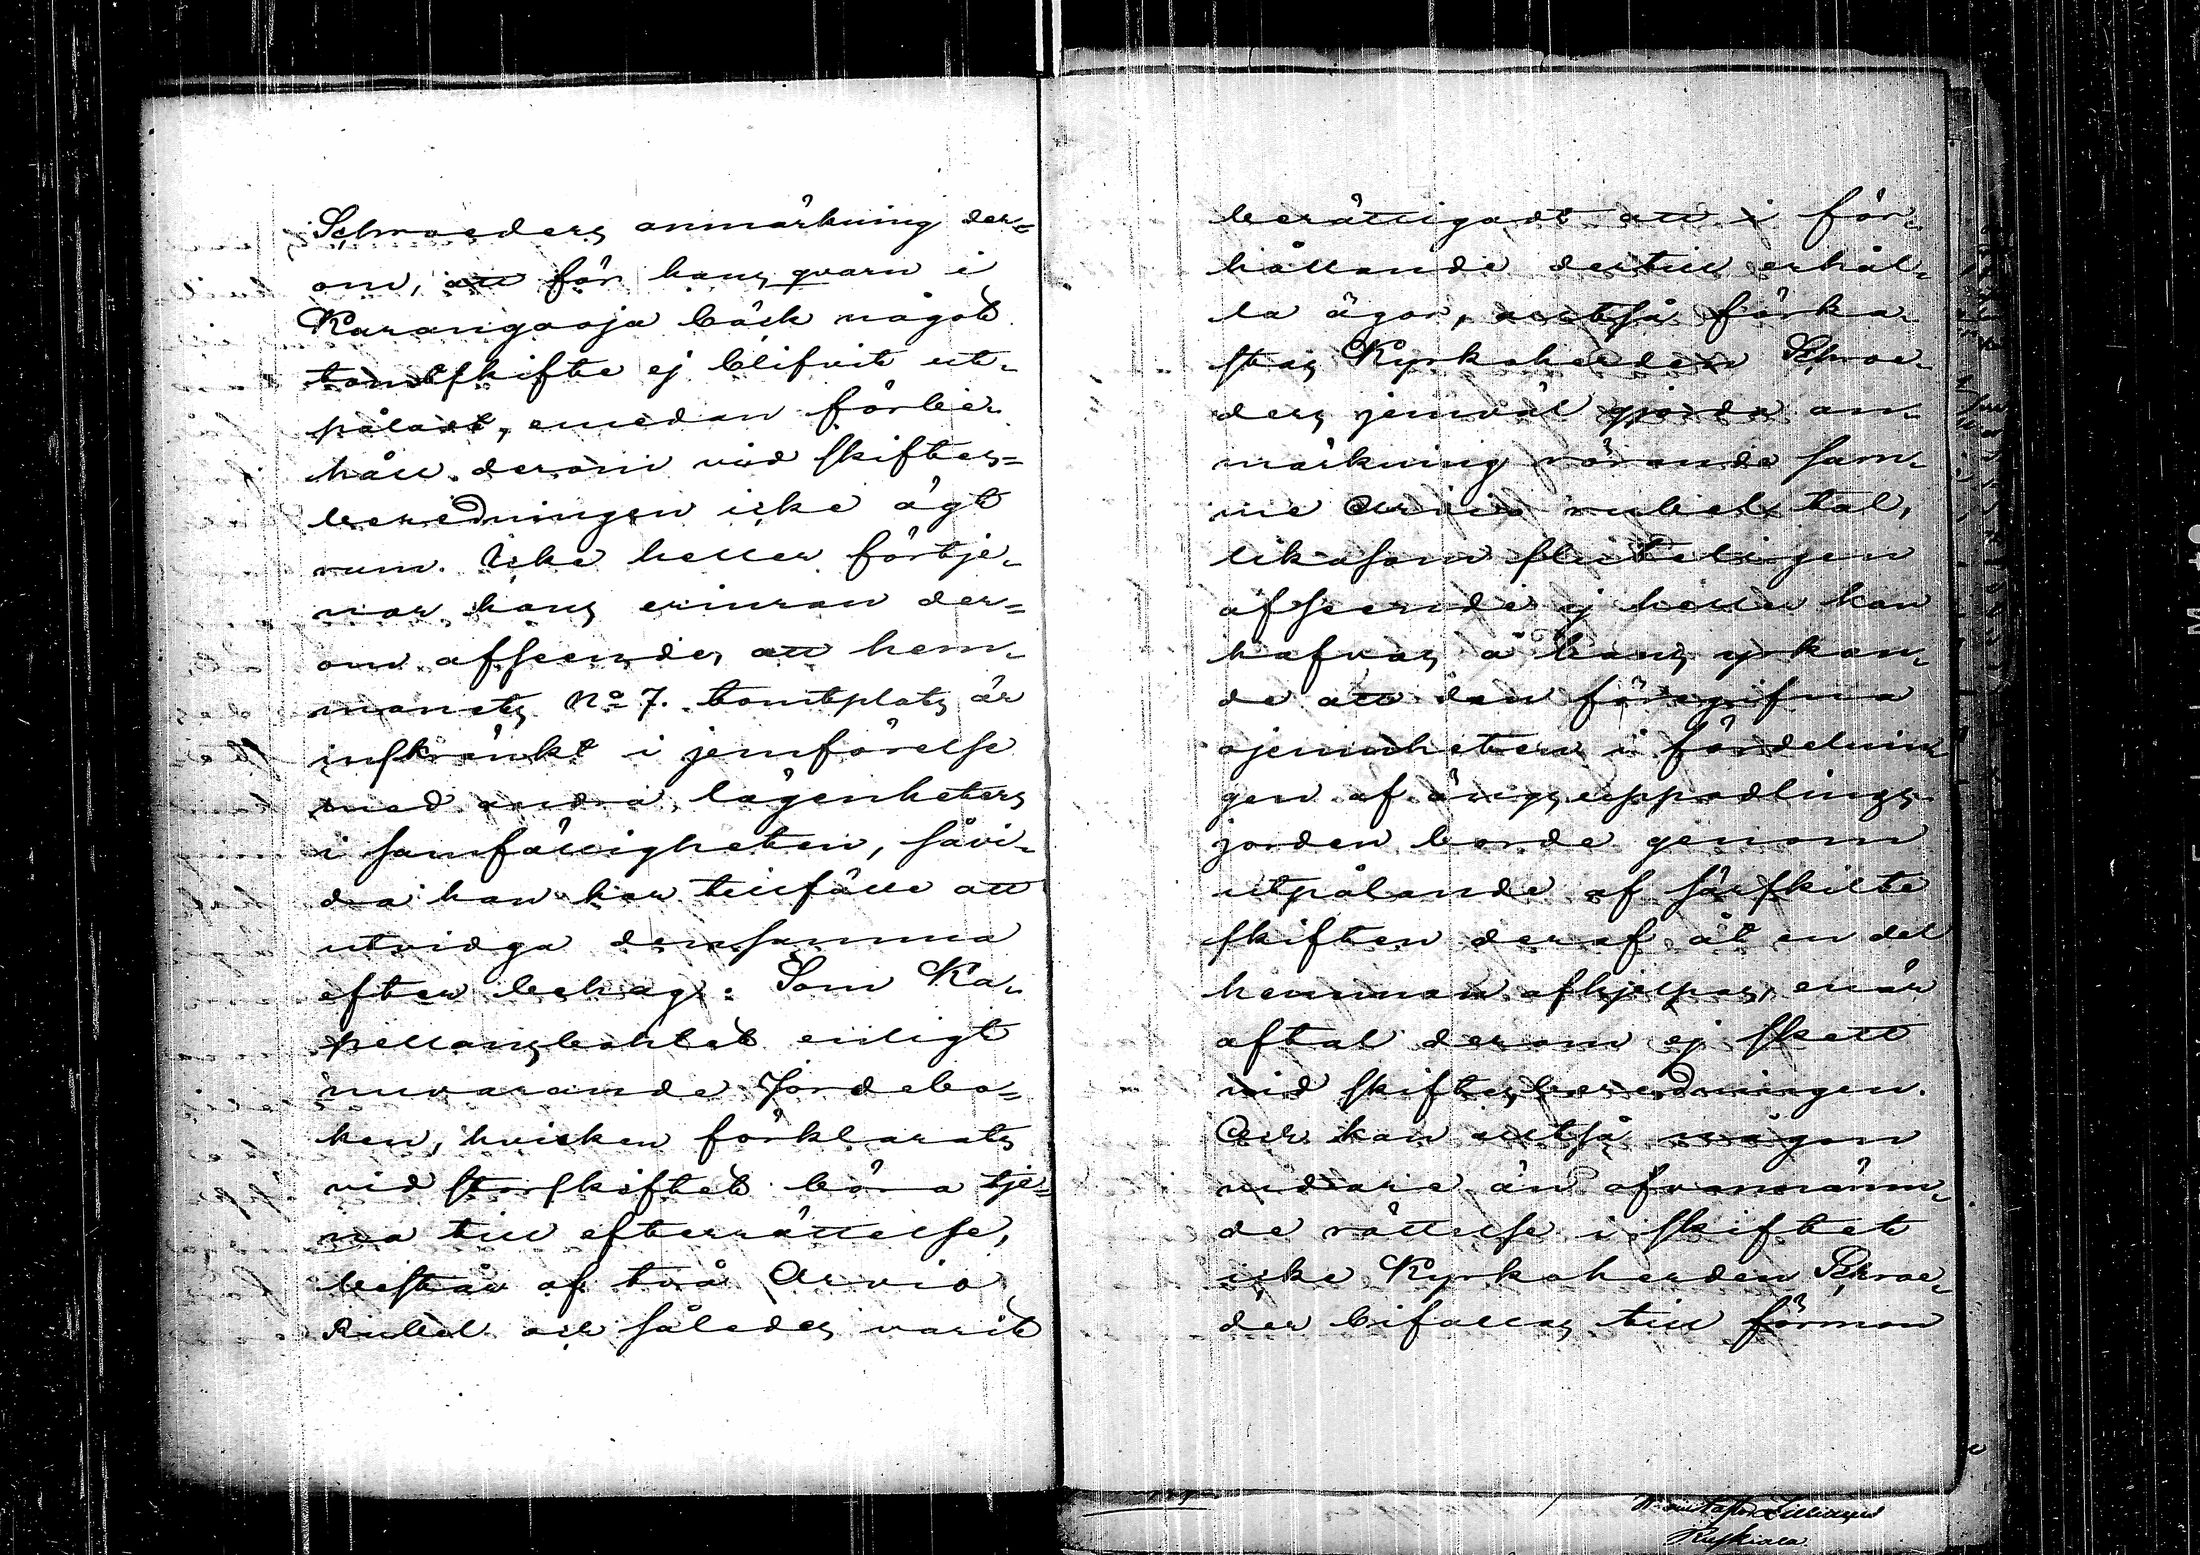 Schroeders anmärkning der=
om, att för hans qvarn i
Karangaoja bäck något
tomtskifte ej blifvit ut-
påladt, emedan förbe-
håll derom vid skiftes=
beredningen icke ägt
rum. Icke heller förtje-
nar hans erinran der=
om afseende, att hem-
manets No 7. tomtplats är
inskränkt i jemförelse
med andra lägenheters
i samfälligheten, såvi-
da han har tillfälle att
utvidga densamma
efter behag. Som Ka-
pellansbohlet enligt
nuvarande Jordebo=
ken, hvilken förklarats
vid storskiftet böra tje=
na till efterrättelse,
består af två Arvio
Rubel och således varit
berättigadt att i för-
hållande dertill erhål-
la ägor, altså förka-
stas Kyrkoherden Schroe-
ders jemväl gjorda an-
märkning rörande sam-
me Arvio rubel tal,
likasom sluteligen
afseende ej heller kan
hafvas å hans yrkan-
de att den föregifna
ojemnheten i fördelnin-
gen af ängsupp­odlings-
jorden borde genom
utpålande af särskilte
skiften deraf åt en del
hemman afhjelpas, enär
aftal derom ej skett
vid skiftesberedningen.
Och kan altså någon
vidare än ofvannämn-
de rättelse i skiftet
icke Kyrkoherden Schroe-
der bifallas till förmon
Ruskiala